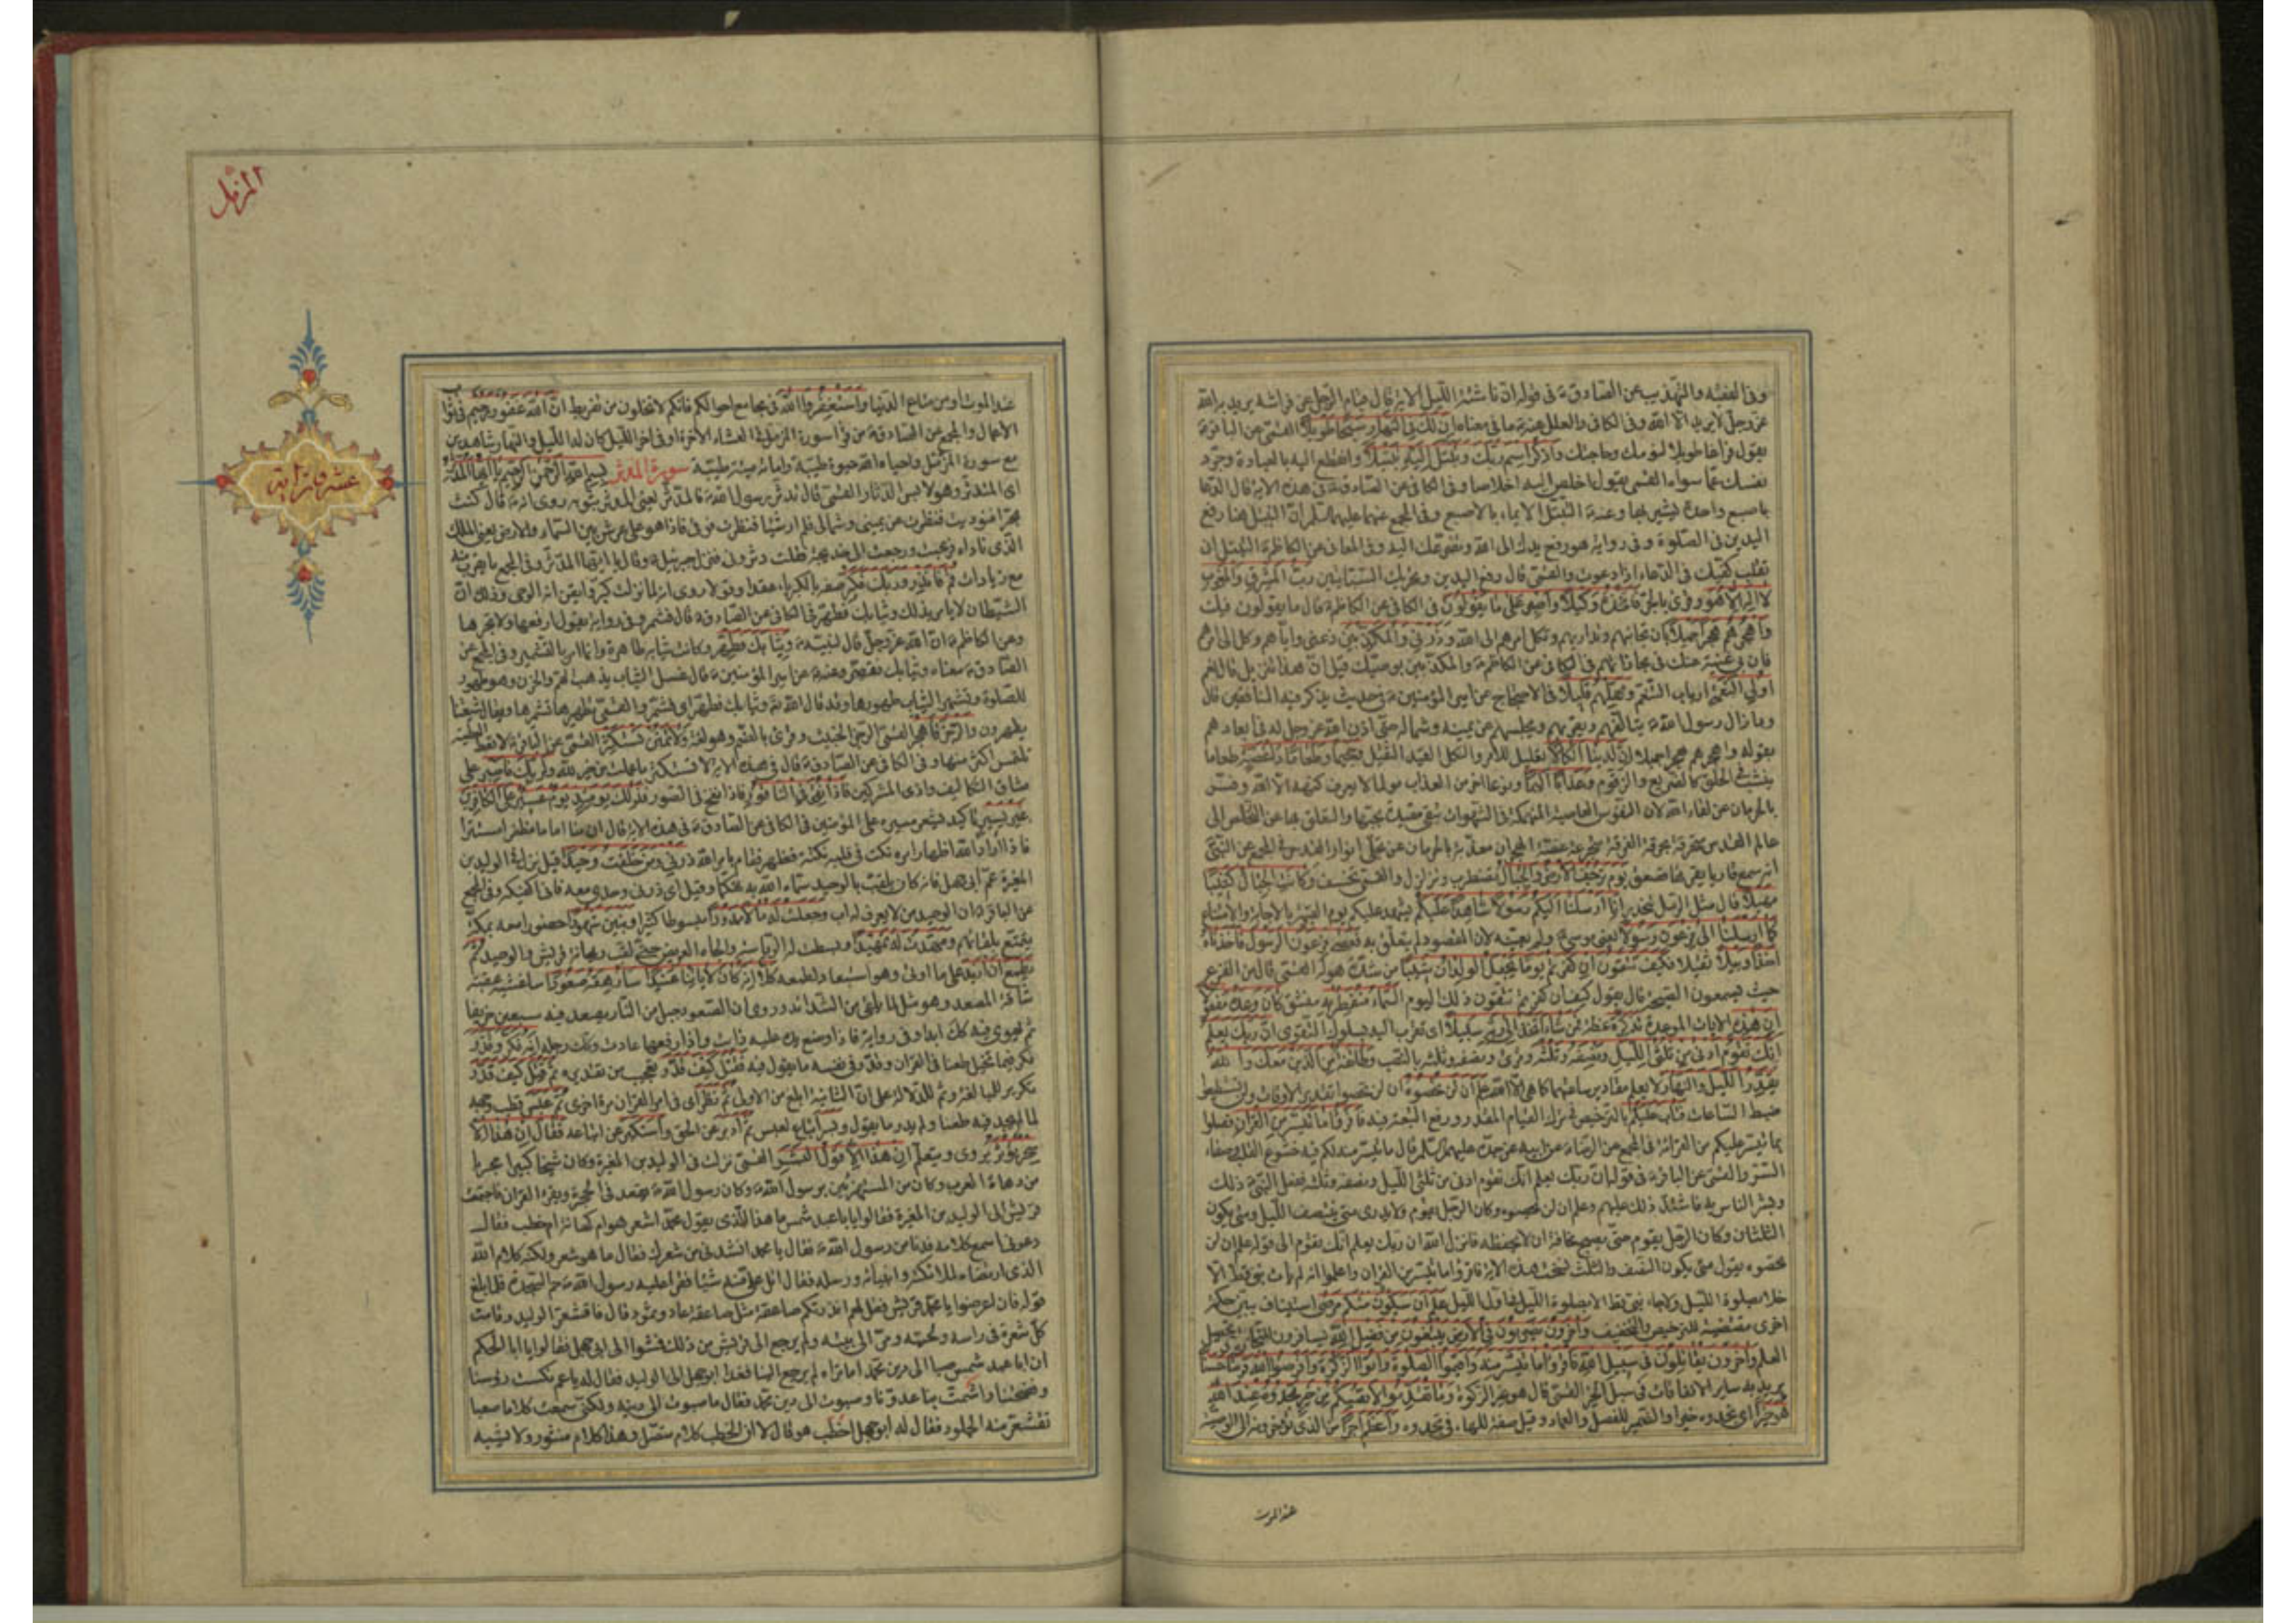 وفی الفقیه والتهذیب عن الصادق ع فی قوله ان ناشئة اللیل الایة قال قیام الرجل عن فراشه یرید به الله
عز وجل لا یرید الا الله وفی الکافی والعلل عنه ع ما فی معناه ان لک فی النهار سبحا طویلا القمی عن الباقر ع
یقول فراغا طویلا لنومک وحاجتک واذکر اسم ربک وتبتل الیه تبتیلا وانقطع الیه بالعبادة وجرد
نفسک عما سواه القمی یقول اخلص الیه اخلاصا وفی الکافی عن الصادق ع فی هذه الایة قال الدعا
باصبع واحدة تشیر بها وعنه ع التبتل الایماء بالاصبع وفی المجمع عنهما علیهما السلم ان التبتل هنا رفع
الیدین فی الصلوة وفی روایة هو رفع یدک الی الله وتضرعک الیه وفی المعانی عن الکاظم ع التبتل ان
تقلب کفیک فی الدعاء اذا دعوت والقمی قال رفع الیدین وتحریک السبابتین رب المشرق والمغرب
لا اله الا هو وقری بالجر فاتخذه وکیلا واصبر علی ما یقولون فی الکافی عن الکاظم ع قال ما یقولون فیک
واهجرهم هجرا جمیلا بان تجانبهم وتداریهم وتکل امرهم الی الله وذرنی والمکذبین دعنی وایاهم وکل الی امرهم
فان فی غنیة عنک فی مجازاتهم فی الکافی عن الکاظم ع والمکذبین بوصیک قیل ان هذا تنزیل قال نعم
اولی النعمة ارباب التنعم ومهلهم قلیلا فی الاحتجاج عن امیر المؤمنین ع فی حدیث یذکر فیه المنافقین قال
وما زال رسول الله ص یتالفهم ویقربهم ویجلسهم عن یمینه وشماله حتی اذن الله عز وجل له فی ابعادهم
بقوله واهجرهم هجرا جمیلا ان لدینا انکالا تعلیل للامر والنکل القید الثقیل وجحیما وطعاما ذا غصة طعاما
ینشب فی الحلق کالضریع والزقوم وعذابا الیما ونوعا اخر من العذاب مولما لا یعرف کنهه الا الله وفسر
بالحرمان عن لقاء الله لان النفوس العاصیة المنهمکة فی الشهوات تبقی مقیدة بحبها والتعلق بها عن التخلص الی
عالم القدس متحرقة بحرقة الفرقة متجرعة غصة الهجران معذبة بالحرمان عن تجلی انوار القدس فی المجمع عن النبی
انه سمع قاریا یقرء هذه فصعق یوم ترجف الارض والجبال تضطرب وتزلزل والقمی تخسف وکانت الجبال کثیبا
مهیلا قال مثل الرمل تنحدر انا ارسلنا الیکم رسولا شاهدا علیکم یشهد علیکم یوم القیمة بالاجابة والامتناع
کما ارسلنا الی فرعون رسولا یعنی موسی ع ولم یعینه لان المقصود لم یتعلق به فعصی فرعون الرسول فاخذناه
اخذا وبیلا ثقیلا فکیف تتقون ان کفرتم یوما یجعل الولدان شیبا من شدة هوله القمی قال من الفزع
حیث یسمعون الصیحة قال یقول کیف ان کفرتم تتقون ذلک الیوم السماء منفطر به منشق کان وعده مفعولا
ان هذه الایات الموعدة تذکرة عظة فمن شاء اتخذ الی ربه سبیلا ای تقرب الیه بسلوک التقوی ان ربک یعلم
انک تقوم ادنی من ثلثی اللیل ونصفه وثلثه وقری ونصفه وثلثه بالنصب وطائفة من الذین معک والله
یقدر اللیل والنهار لا یعلم مقادیر ساعاتهما کما هی الا الله علم ان لن تحصوه ان لن تحصوا تقدیر الاوقات ولن تستطیعوا
ضبط الساعات فتاب علیکم بالترخیص فی ترک القیام المقدر ورفع التبعة فیه فاقرؤا ما تیسر من القران فصلوا
بما تیسر علیکم من القرائة فی المجمع عن الرضا ع عن ابیه عن جده علیهم السلم قال ما تیسر منه لکم فیه خشوع القلب وصفاء
السر والقمی عن الباقر ع فی قوله ان ربک یعلم انک تقوم ادنی من ثلثی اللیل ونصفه وثلثه ففعل النبی ص ذلک
وبشر الناس به فاشتد ذلک علیهم وعلم ان لن تحصوه وکان الرجل یقوم ولا یدری متی ینتصف اللیل ومتی یکون
الثلثان وکان الرجل یقوم حتی یصبح مخافة ان لا یحفظه فانزل الله ان ربک یعلم انک تقوم الی قوله علم ان لن
تحصوه یقول متی یکون النصف والثلث نسخت هذه الایة فاقرؤا ما تیسر من القران واعلموا انه لم یات نبی قط الا
خلا بصلوة اللیل ولا جاء نبی قط بصلوة اللیل فی اول اللیل علم ان سیکون منکم مرضی استیناف یبین حکمة
اخری مقتضیة للترخیص والتخفیف واخرون یضربون فی الارض یبتغون من فضل الله یسافرون للتجارة وتحصیل
العلم واخرون یقاتلون فی سبیل الله فاقرؤا ما تیسر منه واقیموا الصلوة واتوا الزکوة واقرضوا الله قرضا حسنا
یرید به سایر الانفاقات فی سبل الخیر القمی قال هو غیر الزکوة وما تقدموا لانفسکم من خیر تجدوه عند الله
هو خیرا ای تجدوه خیرا والضمیر للفصل والعماد وقیل صفة للهاء فی تجدوه واعظم اجرا من الذی تؤخرونه الی الوصیة
عند الموت
المزمل
عند الموت او من متاع الدنیا واستغفروا الله فی مجامع احوالکم فانکم لا تخلون من تفریط ان الله غفور رحیم فی ثواب
الاعمال والمجمع عن الصادق ع من قرا سورة المزمل فی العشاء الاخرة او فی اخر اللیل کان له اللیل والنهار شاهدین
مع سورة المزمل واحیاه الله حیوة طیبة واماته میتة طیبة سورة المدثر بسم الله الرحمن الرحیم یا ایها المدثر
ای المتدثر وهو لابس الدثار القمی قال تدثر رسول الله ص فالمدثر یعنی المدثر بثوبه روی انه ص قال کنت
بحرا فنودیت فنظرت عن یمینی وشمالی فلم ار شیئا فنظرت فوقی فاذا هو علی عرش بین السماء والارض یعنی الملک
الذی ناداه فرعبت ورجعت الی خدیجة فقلت دثرونی فنزل جبرئیل ع وقال یا ایها المدثر وفی المجمع ما یقرب منه
مع زیادات قم فانذر وربک فکبر صفه بالکبریاء عقدا وقولا روی انه لما نزلت کبر وایقن انه الوحی وذلک ان
الشیطان لا یامر بذلک وثیابک فطهر فی الکافی عن الصادق ع قال فشمر وفی روایة یقول ارفعها ولا تجرها
وعن الکاظم ع ان الله عز وجل قال لنبیه ص وثیابک فطهر وکانت ثیابه طاهرة وانما امره بالتشمیر وفی المجمع عن
الصادق ع معناه وثیابک فقصر وعنه ع عن امیر المؤمنین ع قال غسل الثیاب یذهب الهم والحزن وهو طهور
للصلوة وتشمیر الثیاب طهورها وقد قال الله ته وثیابک فطهر ای فشمر والقمی تطهیرها تشمیرها ویقال شیعتنا
یطهرون والرجز فاهجر القمی الرجز الخبیث وقری بالضم وهو لغة ولا تمنن تستکثر القمی عن الباقر ع لا تعط العطیة
تلتمس اکثر منها وفی الکافی عن الصادق ع قال فی هذه الایة لا تستکثر ما عملت من خیر لله ولربک فاصبر علی
مشاق التکالیف واذی المشرکین فاذا نقر فی الناقور فاذا نفخ فی الصور فذلک یومئذ یوم عسیر علی الکافرین
غیر یسیر تاکید یشعر بیسره علی المؤمنین فی الکافی عن الصادق ع فی هذه الایة قال ان منا اماما مظفرا مستترا
فاذا اراد الله اظهار امره نکت فی قلبه نکتة فظهر فقام بامر الله ذرنی ومن خلقت وحیدا قیل نزلت فی الولید بن
المغیرة عم ابی جهل فانه کان یلقب بالوحید سماه الله به تهکما وقیل ای ذرنی وحدی معه فانی اکفیکه وفی المجمع
عن الباقر ع ان الوحید من لا یعرف له اب وجعلت له مالا ممدودا مبسوطا کثیرا وبنین شهودا حضورا معه بمکة
یتمتع بلقائهم ومهدت له تمهیدا وبسطت له الریاسة والجاه العریض حتی لقب ریحانة قریش والوحید ثم
یطمع ان ازید علی ما اوتی وهو استبعاد لطمعه کلا انه کان لایاتنا عنیدا سارهقه صعودا ساغشیه عقبة
شاقة المصعد وهو مثل لما یلقی من الشدائد وروی ان الصعود جبل من النار یصعد فیه سبعین خریفا
ثم یهوی فیه کذلک ابدا وفی روایة فاذا وضع یده علیه ذابت واذا رفعها عادت وکذلک رجله انه فکر وقدر
فکر فیما تخیل طعنا فی القران وقدر فی نفسه ما یقول فیه فقتل کیف قدر تعجب من تقدیره ثم قتل کیف قدر
تکریر للمبالغة وثم للدلالة علی ان الثانیة ابلغ من الاول ثم نظر ای فی امر القران مرة اخری ثم عبس قطب وجهه
لما لم یجد فیه طعنا ولم یدر ما یقول وبسر اتباع لعبس ثم ادبر عن الحق واستکبر عن اتباعه فقال ان هذا الا
سحر یؤثر یروی ویتعلم ان هذا الا قول البشر القمی نزلت فی الولید بن المغیرة وکان شیخا کبیرا مجربا
من دهاة العرب وکان من المستهزئین برسول الله ص وکان رسول الله ص یقعد فی الحجرة ویقرء القران فاجتمعت
قریش الی الولید بن المغیرة فقالوا یا با عبد شمس ما هذا الذی یقول محمد اشعر هو ام کهانة ام خطب فقال
دعونی اسمع کلامه فدنا من رسول الله ص فقال یا محمد انشدنی من شعرک فقال ما هو شعر ولکنه کلام الله
الذی ارتضاه لملائکته وانبیائه ورسله فقال اتل علی منه شیئا فقرا علیه رسول الله ص حم السجدة فلما بلغ
قوله فان اعرضوا یا محمد قریش فقل لهم انذرتکم صاعقة مثل صاعقة عاد وثمود قال فاقشعر الولید وقامت
کل شعرة فی راسه ولحیته ومر الی بیته ولم یرجع الی قریش من ذلک فمشوا الی ابی جهل فقالوا یا ابا الحکم
ان ابا عبد شمس صبا الی دین محمد اما تراه لم یرجع الینا فغدا ابو جهل الی الولید فقال له یا عم نکست رؤسنا
وفضحتنا واشمت بنا عدونا وصبوت الی دین محمد فقال ما صبوت الی دینه ولکنی سمعت کلاما صعبا
تقشعر منه الجلود فقال له ابو جهل اخطب هو قال لا ان الخطب کلام متصل وهذا کلام منثور ولا یشبه